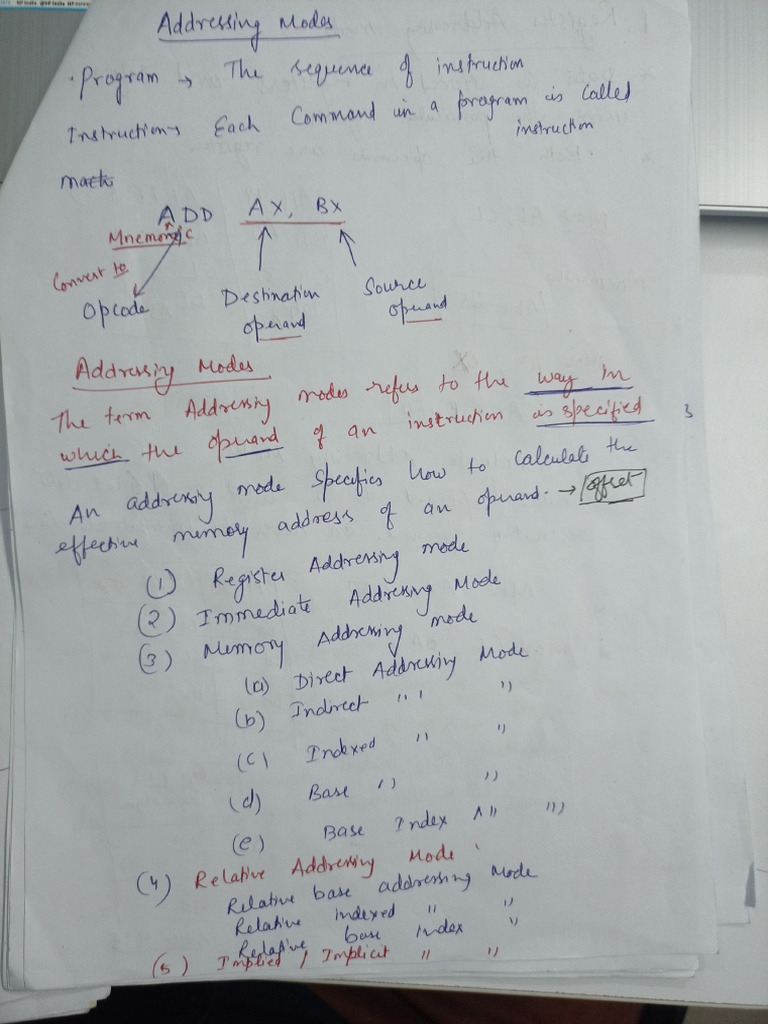 Addressing Modes
· Program → The sequence of instruction
Instruction → Each Command in a program is called
instruction
Mach
ADD AX, BX
Mnemonic
Convert to
Opcode
Destination
operand
Source
operand
Addressing Modes
The term Addressing modes refers to the way in
which the operand of an instruction is specified
An addressing mode specifies how to calculate the
effective memory address of an operand. → offset
(1) Register Addressing mode
(2) Immediate Addressing Mode
(3) Memory Addressing mode
(a) Direct Addressing Mode
(b) Indirect " "
(c) Indexed " "
(d) Base " "
(e) Base Index " "
(4) Relative Addressing Mode
Relative base addressing mode
Relative indexed " "
Relative base index "
(5) Implied / Implicit " "